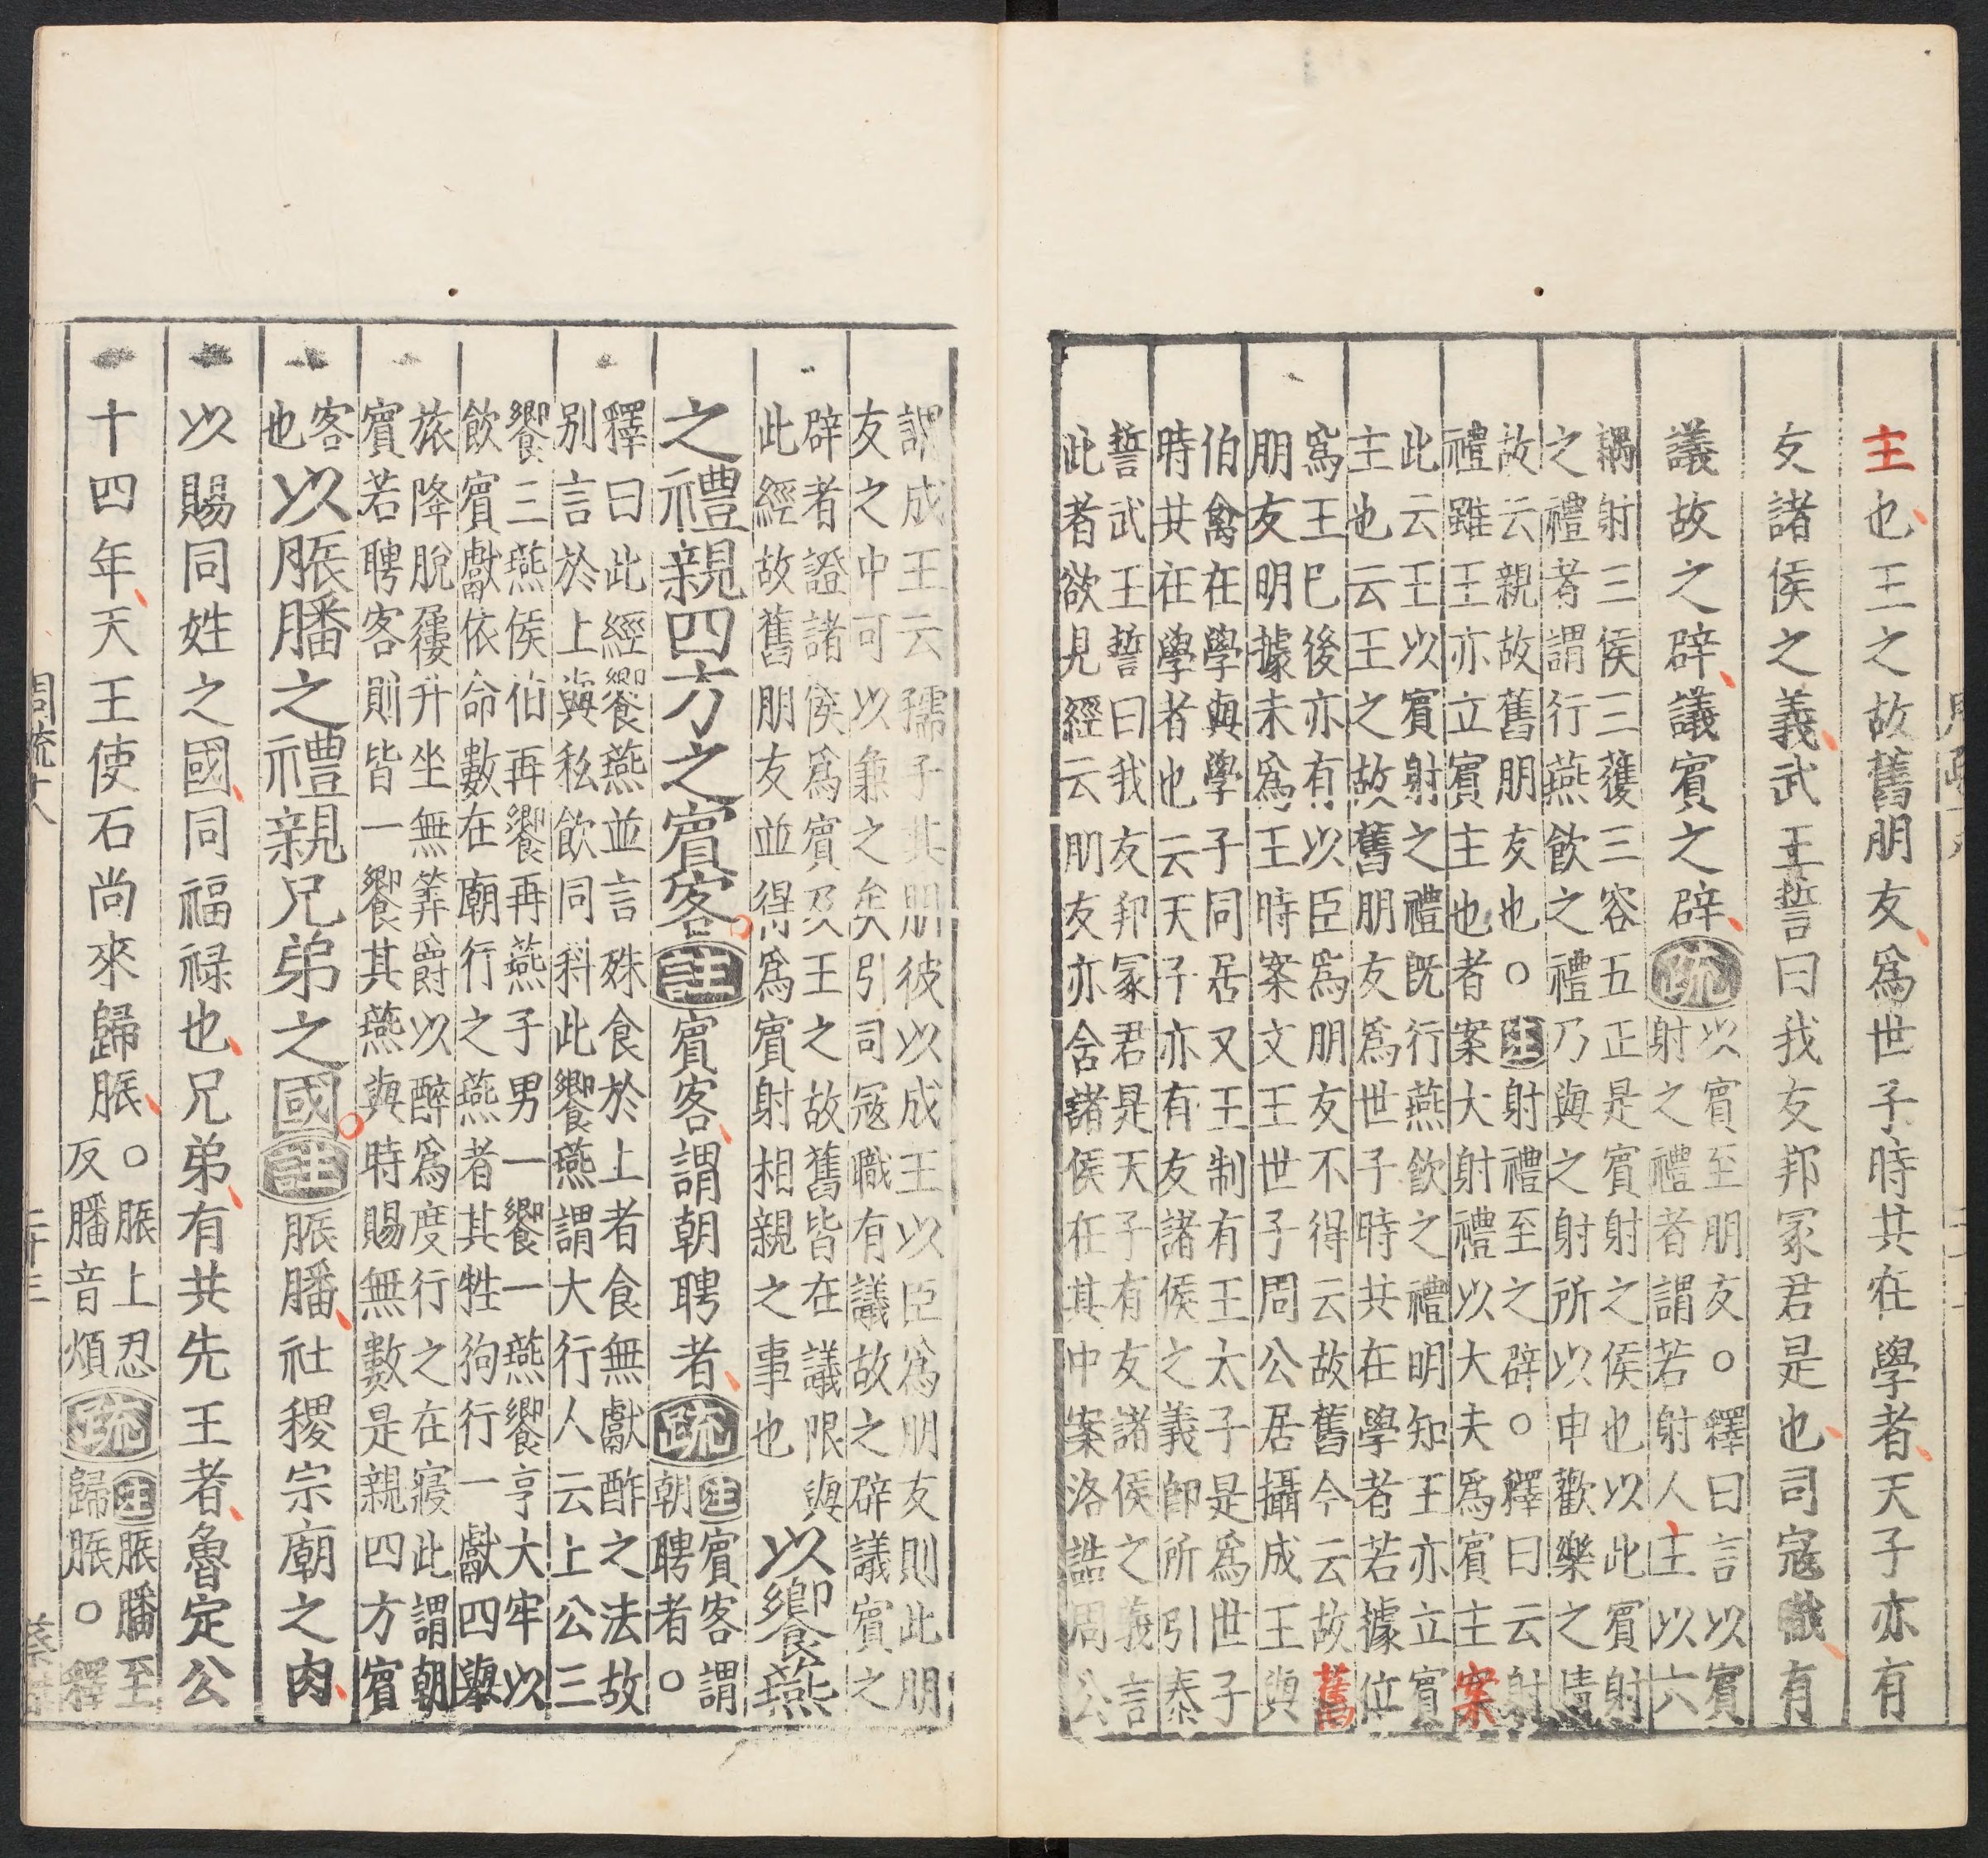 主也王之故舊朋友爲世子時共在學者天子亦有
友諸侯之義武王誓曰我友邦冢君是也司寇職有
議故之辟議賓之辟疏以賓至朋友○釋曰言以賓
射之禮者謂若射人王以六
耦射三侯三獲三容五正是賓射之侯也以此賓射
之禮者謂行燕飲之禮乃與之射所以申歡樂之情
故云親故舊朋友也○注射禮至之辟○釋曰云射
禮雖王亦立賓主也者案大射禮以大夫爲賓主案
此云王以賓射之禮既行燕飲之禮明知王亦立賓
主也云王之故舊朋友爲世子時共在學者若據位
爲王已後亦有以臣爲朋友不得云故舊今云故舊
朋友明據未爲王時案文王世子周公居攝成王與
伯禽在學與學子同居又王制有王太子是爲世子
時共在學者也云天子亦有友諸侯之義即所引泰
誓武王誓曰我友邦冢君是天子有友諸侯之義言
此者欲見經云朋友亦含諸侯在其中案洛誥周公
謂成王云孺子其朋彼以成王以臣爲朋友則此朋
友之中可以兼之矣引司寇職有議故之辟議賓之
辟者證諸侯爲賓及王之故舊皆在議限與
此經故舊朋友並得爲賓射相親之事也以饗燕
之禮親四方之賓客註賓客謂朝聘者疏注賓客謂
朝聘者○
釋曰此經饗燕並言殊食於上者食無獻酢之法故
別言於上與私飲同科此饗燕謂大行人云上公三
饗三燕侯伯再饗再燕子男一饗一燕饗亨大牢以
飲賓獻依命數在廟行之燕者其牲狗行一獻四舉
旅降脫屨升坐無筭爵以醉爲度行之在寢此謂朝
賓若聘客則皆一饗其燕與時賜無數是親四方賓
客
也以脤膰之禮親兄弟之國註脤膰社稷宗廟之肉
以賜同姓之國同福祿也兄弟有共先王者魯定公
十四年天王使石尚來歸脤○脤上忍
反膰音煩疏注脤膰至
歸脤○釋
周疏十八
二十三